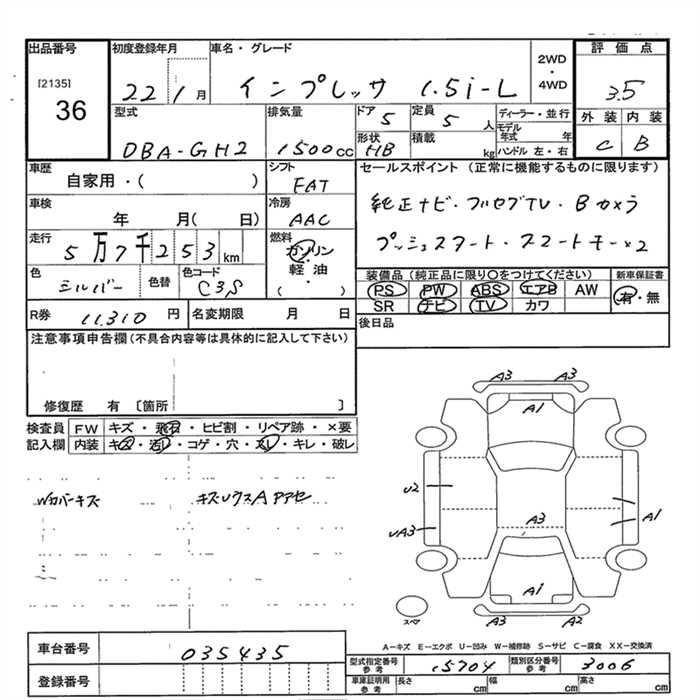 出品番号 初度登録年月 車名・グレード 評価点
[2135] 36
22 1月 インプレッサ 1.5i-L 2WD・4WD 3.5
型式 排気量 ドア 5 定員 5人 ディーラー・並行 外装 内装
DBA-GH2 1500cc 形状 HB 積載 kg モデル年式 年 C B
ハンドル 左・右
車歴 シフト セールスポイント (正常に機能するものに限ります)
自家用・( ) FAT
車検 冷房 純正ナビ・フルセグTV・Bカメラ
年 月( 日) AAC
走行 燃料 プッシュスタート・スマートキー×2
5万7千253km ガソリン・軽油・( )
色 色替 色コード 装備品(純正品に限り〇をつけてください) 新車保証書
シルバー C3S PS PW ABS エアB AW 有・無
SR ナビ TV カワ
R券 11,310円 名変期限 月 日 後日品
注意事項申告欄(不具合内容等は具体的に記入して下さい)
修復歴 有 [箇所 ]
検査員 FW キズ・飛石・ヒビ割・リペア跡・×要
記入欄 内装 キズ・汚レ・コゲ・穴・スレ・キレ・破レ
Wカバーキズ
A3 A3
A1
U2
A3 A1
UA3
A1
A3 A2
スペア
A-キズ E-エクボ U-凹み W-補修跡 S-サビ C-腐食 XX-交換済
車台番号 035435
登録番号
型式指定番号 参考 15704 類別区分番号 参考 3006
車庫証明用 参考 長さ cm 幅 cm 高さ cm